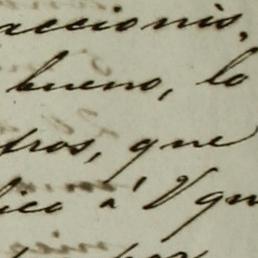 accionis.
bueno, lo
tros, que
lico á V qu